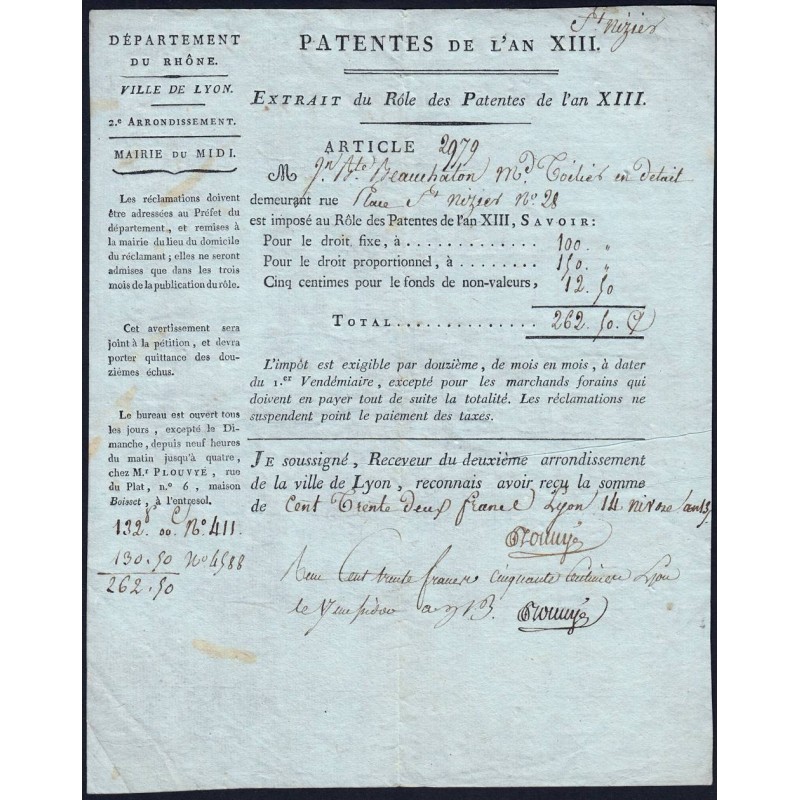 St nizier
DÉPARTEMENT
DU RHÔNE.
VILLE DE LYON.
2.e ARRONDISSEMENT.
MAIRIE DU MIDI.
Les réclamations doivent
être adressées au Préfet du
département, et remises à
la mairie du lieu du domicile
du réclamant ; elles ne seront
admises que dans les trois
mois de la publication du rôle.
Cet avertissement sera
joint à la pétition, et devra
porter quittance des dou-
zièmes échus.
Le bureau est ouvert tous
les jours, excepté le Di-
manche, depuis neuf heures
du matin jusqu'à quatre,
chez M.r PLOUVYÉ, rue
du Plat, n.o 6, maison
Boisset, à l'entresol.
132 00 No. 411
130.50 No 4588
262.50
PATENTES DE L'AN XIII.
EXTRAIT du Rôle des Patentes de l'an XIII.
ARTICLE 2979
M Jn Bte Beauchaton Md Toilier en detail
demeurant rue Place St nizier No. 28
est imposé au Rôle des Patentes de l'an XIII, SAVOIR:
Pour le droit fixe, à .............. 100 "
Pour le droit proportionnel, à ........ 150 "
Cinq centimes pour le fonds de non-valeurs, 12.50
TOTAL .............. 262.50
L'impôt est exigible par douzième, de mois en mois, à dater
du 1.er Vendémiaire, excepté pour les marchands forains qui
doivent en payer tout de suite la totalité. Les réclamations ne
suspendent point le paiement des taxes.
JE soussigné, Receveur du deuxième arrondissement
de la ville de Lyon, reconnais avoir reçu la somme
de Cent Trente deux francs Lyon 14 nivose an 13.
Plouvyé
Cent trente francs cinquante centimes Lyon
le 13.
Plouvyé